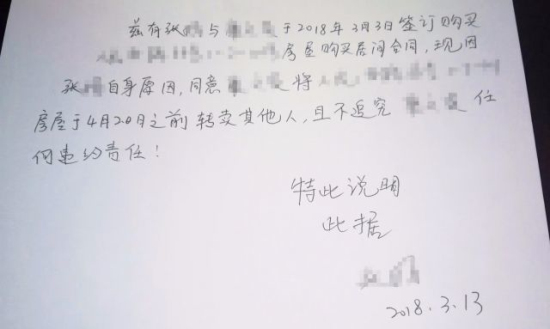 兹有张 与 于2018年3月3日签订购买
房屋购买居间合同，现因
张 自身原因，同意 将
房屋于4月20日之前转卖其他人，且不追究 任
何违约责任！
特此说明
此据
2018.3.13